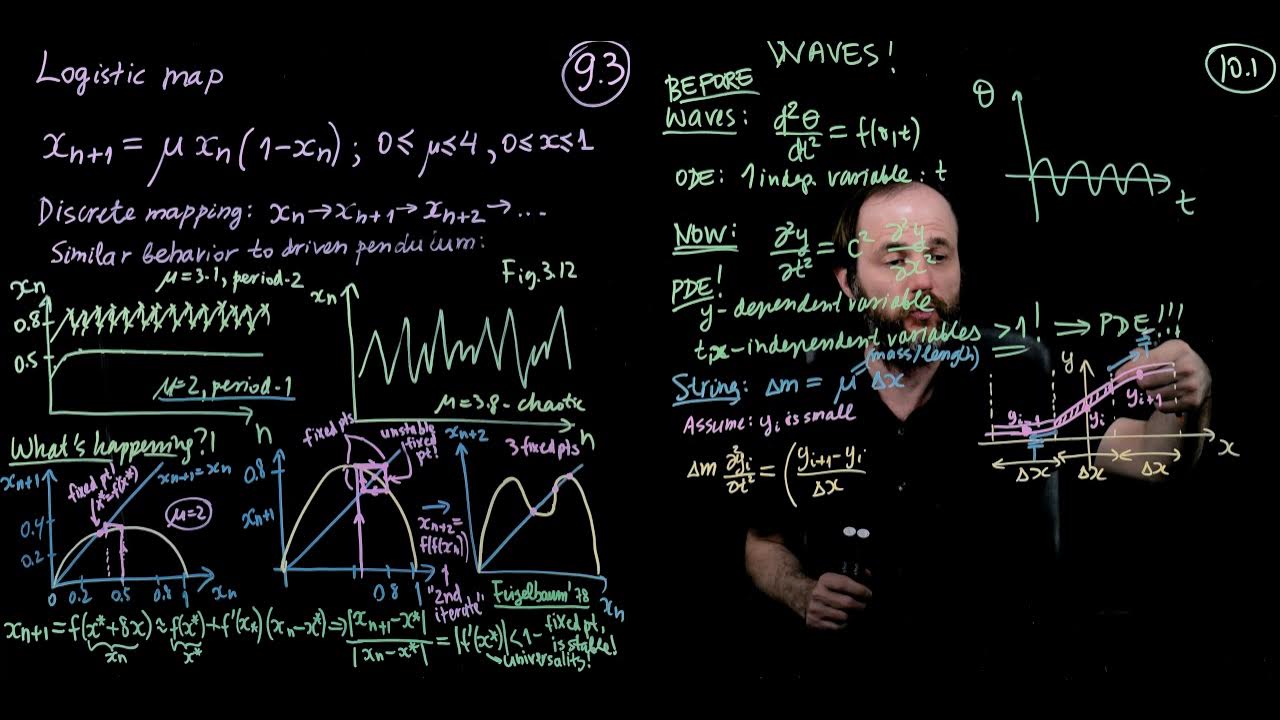 Logistic map
9.3
xₙ₊₁ = μ xₙ(1-xₙ); 0≤μ≤4, 0≤x≤1
Discrete mapping: xₙ→xₙ₊₁→xₙ₊₂→...
Similar behavior to driven pendulum:
μ=3.1, period-2
Fig.3.12
xₙ
0.8
0.5
μ=2, period-1
n
xₙ
μ=3.8-chaotic
n
What's happening?!
xₙ₊₁
xₙ₊₁=xₙ
fixed pt!
x*=f(x*)
μ=2
0.4
0.2
0 0.2 0.5 0.8 1
xₙ
fixed pts
unstable
fixed
pt!
0.8
xₙ₊₁
0.8 1
→
xₙ₊₂=
f(f(xₙ))
"2nd
iterate"
xₙ₊₂
3 fixed pts
xₙ
Feigelbaum '78
xₙ₊₁ = f(x*+δx) ≈ f(x*)+f'(x*)(xₙ-x*) ⇒ |xₙ₊₁-x*| / |xₙ-x*| = |f'(x*)|<1 - fixed pt. is stable!
xₙ
x*
universality!
WAVES!
10.1
BEFORE
Waves: d²θ/dt² = f(θ,t)
ODE: 1 indep. variable: t
θ
t
NOW: ∂²y/∂t² = c² ∂²y/∂x²
PDE!
y-dependent variable
t,x-independent variables >1! ⇒ PDE!!!
(mass/length)
String: Δm = μ Δx
Assume: yᵢ is small
Δm ∂²yᵢ/∂t² = (yᵢ₊₁-yᵢ/Δx
y
yᵢ₋₁
yᵢ
yᵢ₊₁
x
Δx Δx Δx